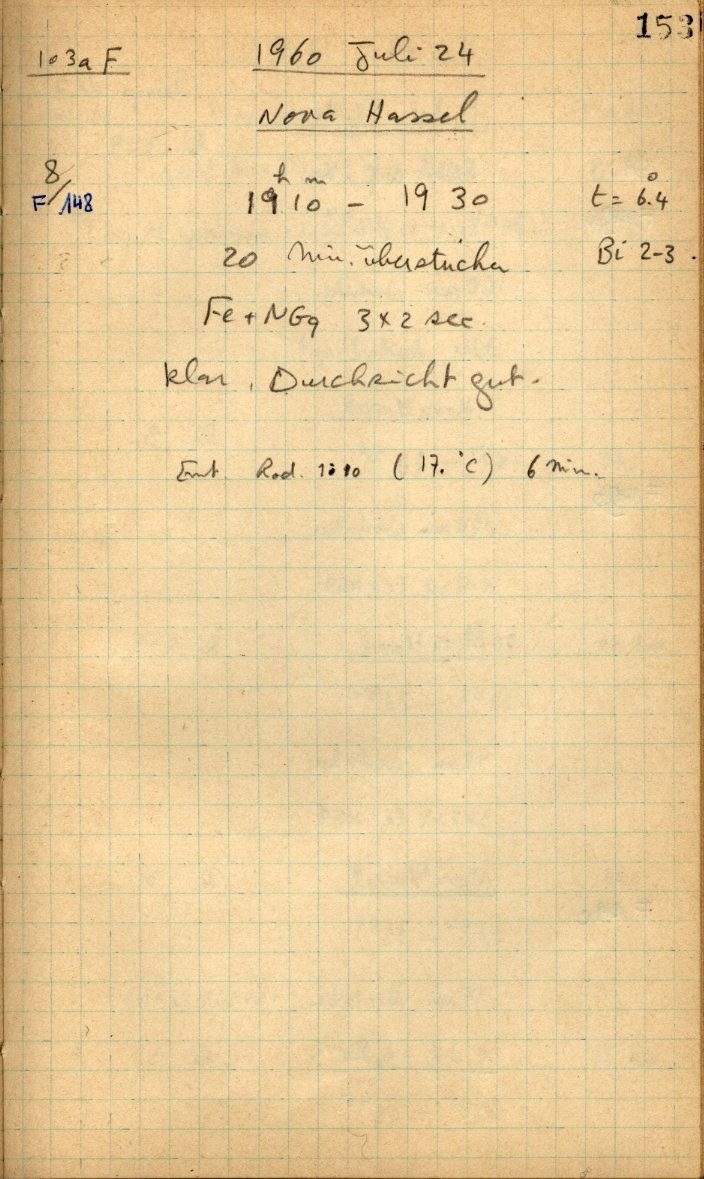 153
103a F 1960 Juli 24
Nova Hassel
8/
F/148 19h 10m – 19 30 t = 6.°4
20 Min. überstrichen Bi 2-3.
Fe + NGg 3 × 2 sec.
klar, Durchsicht gut.
Ent. Rod. 1:10 (17.°C) 6 Min.